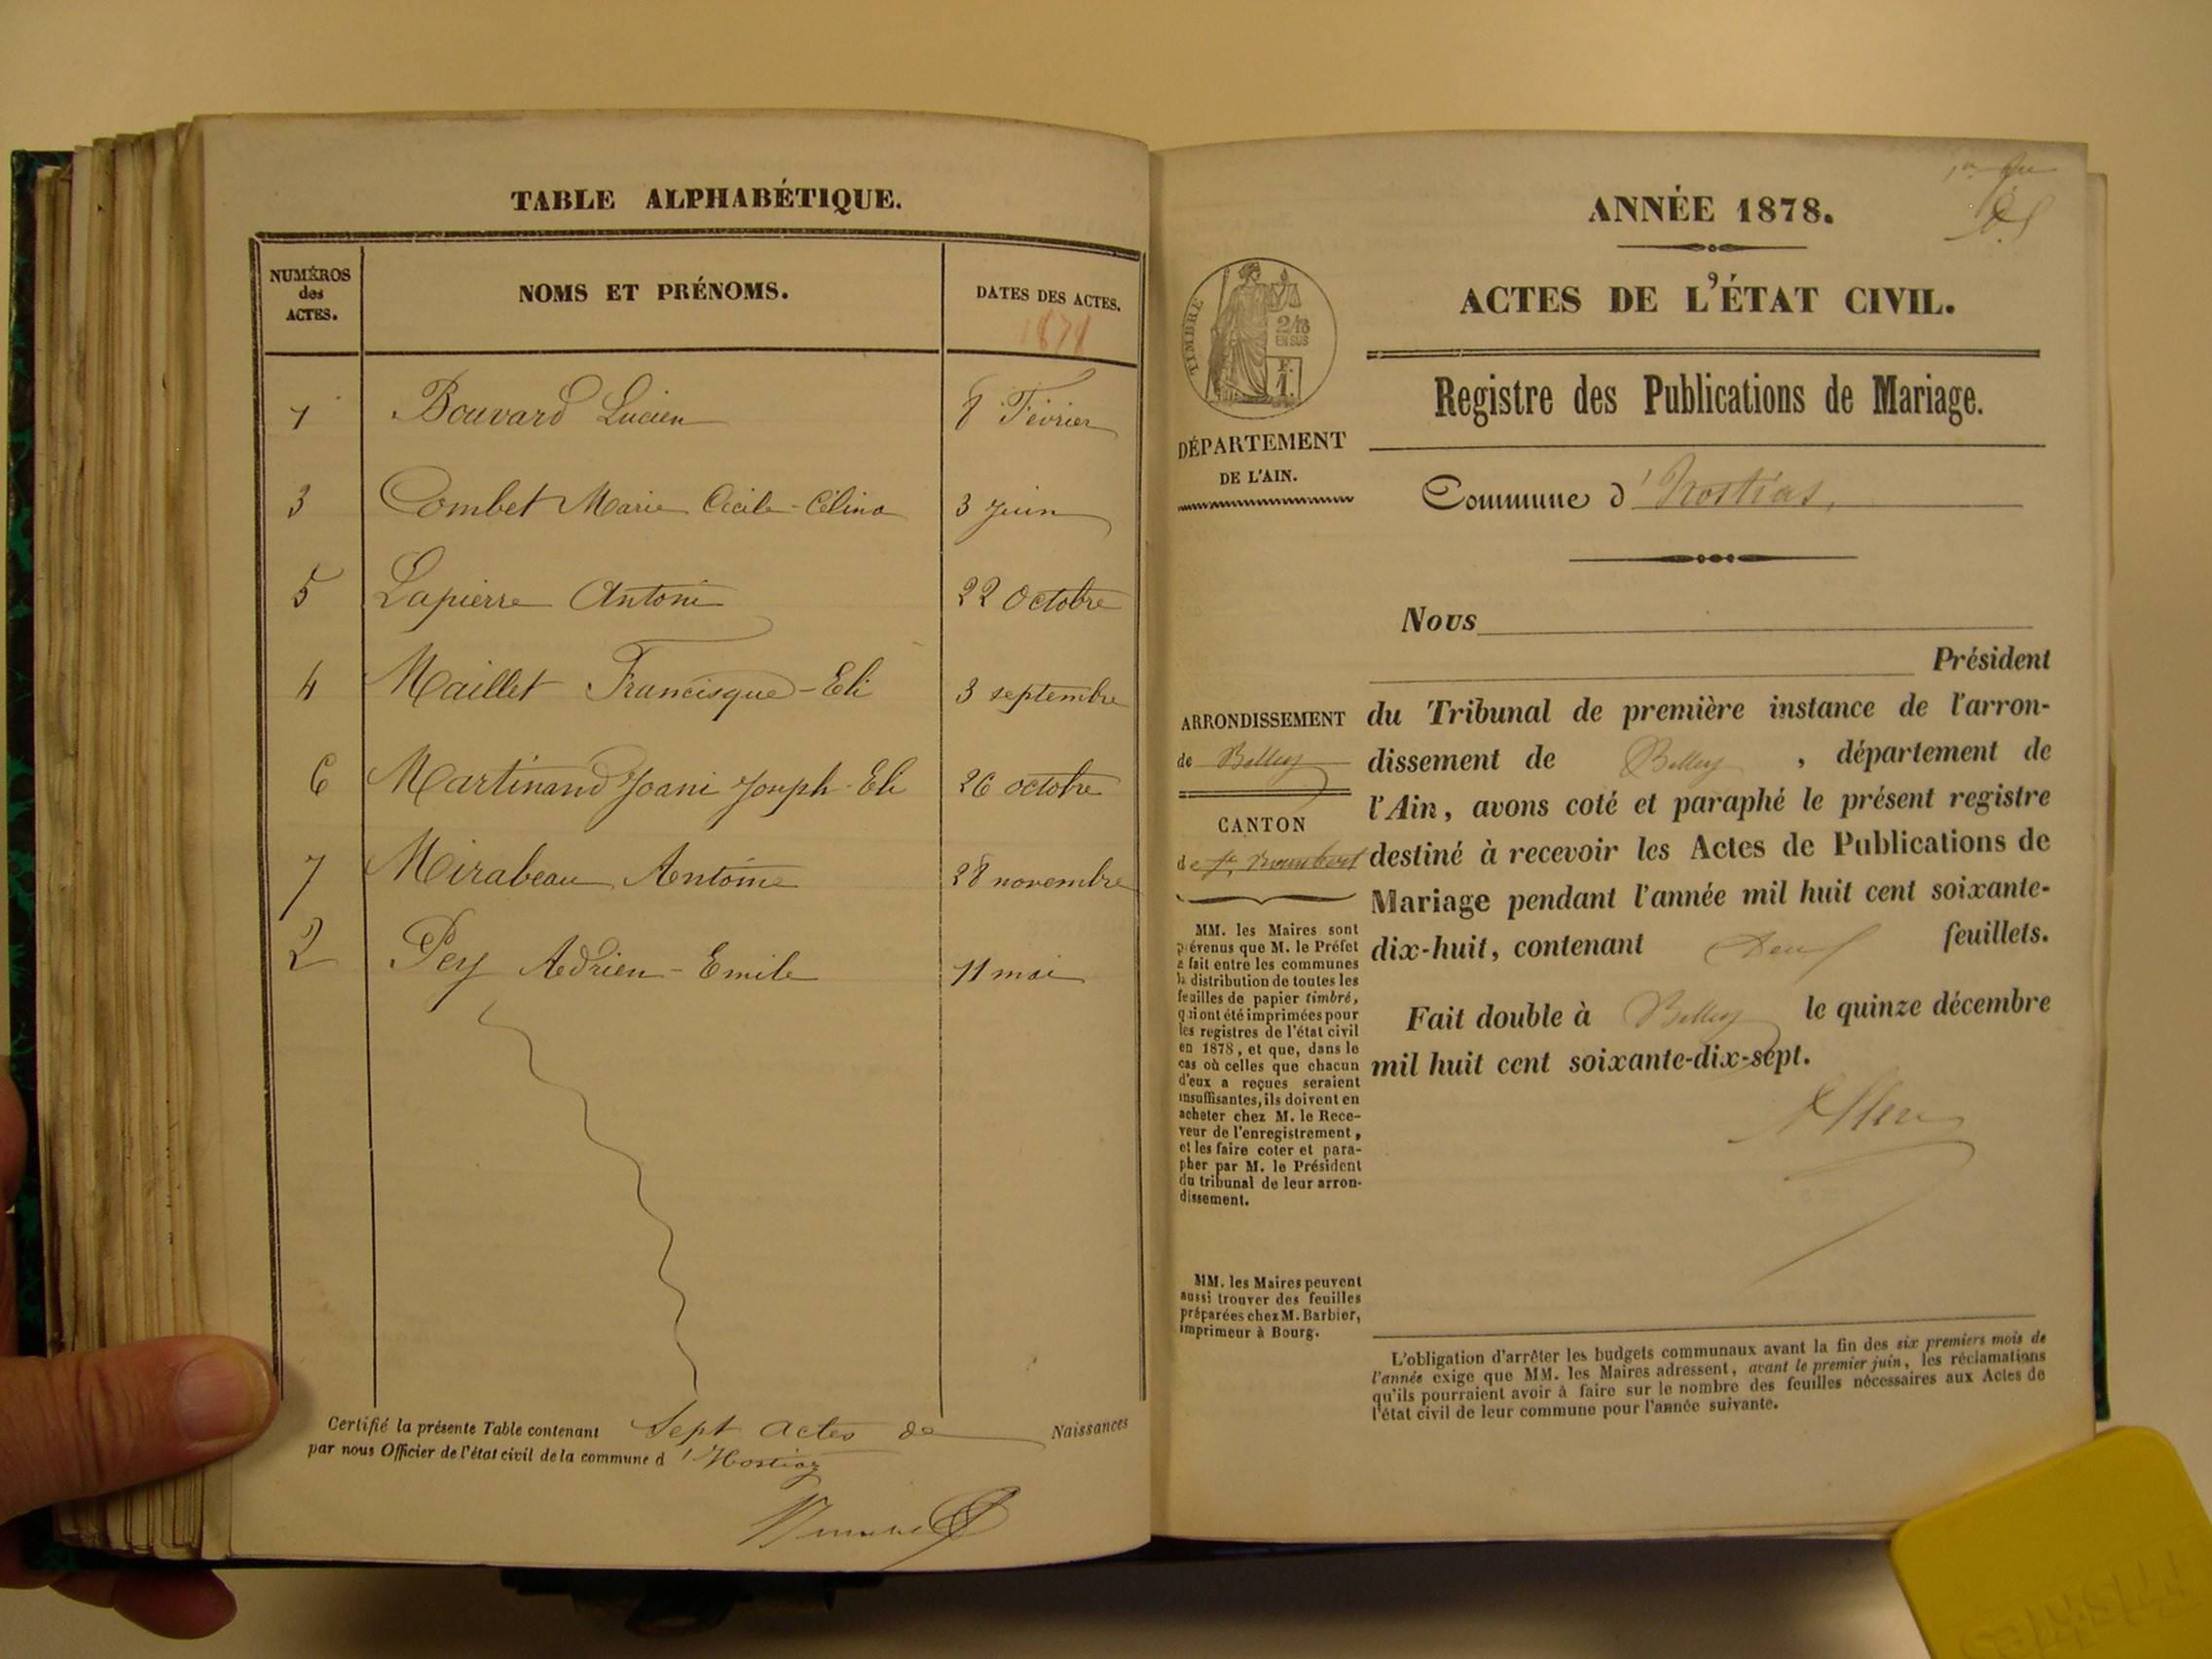 TABLE ALPHABÉTIQUE.
NUMÉROS
des
ACTES.
NOMS ET PRÉNOMS.
DATES DES ACTES.
1878
1 Bouvard Lucien 8 Février
3 Combet Marie Cécile-Célina 3 Juin
5 Lapierre Antoni 22 Octobre
4 Maillet Francisque-Eli 3 septembre
6 Martinand Joani Joseph-Eli 26 octobre
7 Mirabeau Antoine 28 novembre
2 Pey Adrien-Emile 11 mai
Certifié la présente Table contenant Sept actes de Naissances
par nous Officier de l'état civil de la commune d'Hostiaz
ANNÉE 1878.
ACTES DE L'ÉTAT CIVIL.
TIMBRE
2/10
EN SUS
F.
1.
Registre des Publications de Mariage.
DÉPARTEMENT
DE L'AIN.
Commune d'Hostias,
Nous
Président
du Tribunal de première instance de l'arron-
dissement de Belley, département de
l'Ain, avons coté et paraphé le présent registre
destiné à recevoir les Actes de Publications de
Mariage pendant l'année mil huit cent soixante-
dix-huit, contenant Deux feuillets.
Fait double à Belley le quinze décembre
mil huit cent soixante-dix-sept.
ARRONDISSEMENT
de Belley
CANTON
de St. Rambert
MM. les Maires sont
prévenus que M. le Préfet
a fait entre les communes
la distribution de toutes les
feuilles de papier timbré,
qui ont été imprimées pour
les registres de l'état civil
en 1878, et que, dans le
cas où celles que chacun
d'eux a reçues seraient
insuffisantes, ils doivent en
acheter chez M. le Rece-
veur de l'enregistrement,
et les faire coter et para-
pher par M. le Président
du tribunal de leur arron-
dissement.
MM. les Maires peuvent
aussi trouver des feuilles
préparées chez M. Barbier,
imprimeur à Bourg.
L'obligation d'arrêter les budgets communaux avant la fin des six premiers mois de
l'année exige que MM. les Maires adressent, avant le premier juin, les réclamations
qu'ils pourraient avoir à faire sur le nombre des feuilles nécessaires aux Actes de
l'état civil de leur commune pour l'année suivante.